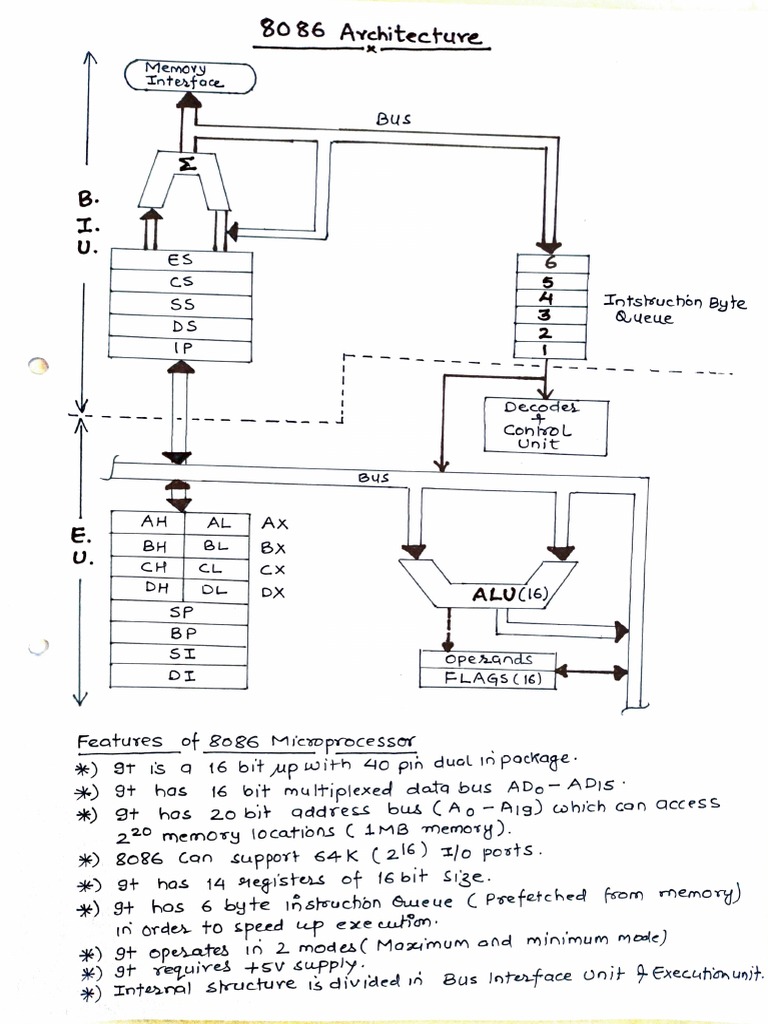 8086 Architecture
Memory
Interface
Bus
Σ
B.
I.
U.
ES
CS
SS
DS
IP
6
5
4
3
2
1
Intstruction Byte
Queue
Decodes
+
Control
Unit
Bus
E.
U.
AH AL AX
BH BL BX
CH CL CX
DH DL DX
SP
BP
SI
DI
ALU(16)
Operands
FLAGS(16)
Features of 8086 Microprocessor
*) It is a 16 bit μp with 40 pin dual in package.
*) It has 16 bit multiplexed data bus AD0 – AD15.
*) It has 20 bit address bus (A0 – A19) which can access
2^20 memory locations (1MB memory).
*) 8086 can support 64K (2^16) I/O ports.
*) It has 14 registers of 16 bit size.
*) It has 6 byte instruction Queue (Prefetched from memory)
in order to speed up execution.
*) It operates in 2 modes (Maximum and minimum mode)
*) It requires +5V supply.
*) Internal structure is divided in Bus Interface Unit & Execution unit.